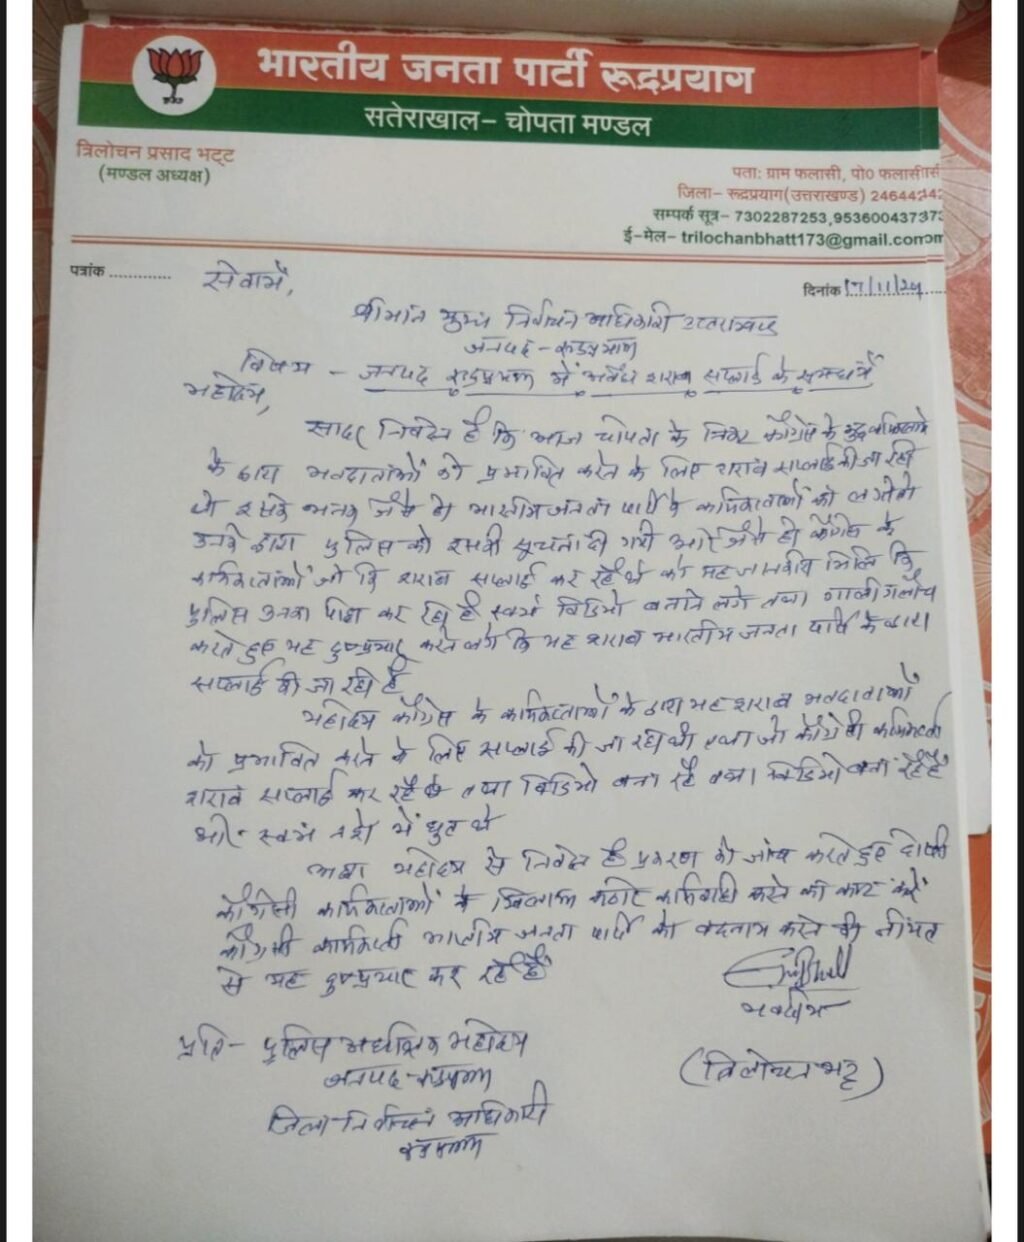 भारतीय जनता पार्टी रूद्रप्रयाग
सतेराखाल- चोपता मण्डल
त्रिलोचन प्रसाद भट्ट
(मण्डल अध्यक्ष)
पता: ग्राम फलासी, पो0 फलासी
जिला- रूद्रप्रयाग(उत्तराखण्ड)
सम्पर्क सूत्र- 7302287253,
ई-मेल- trilochanbhatt173@gmail.com
पत्रांक ............
दिनांक 17/11/24
सेवामें,
श्रीमान मुख्य निर्वाचन अधिकारी उत्तराखण्ड
जनपद - रूद्रप्रयाग
विषय - जनपद रूद्रप्रयाग में अवैध शराब सप्लाई के सम्बन्ध में
महोदय,
सादर निवेदन है कि आज चोपता के निकट काँग्रेस के कुछ कार्यकर्ताओं
के द्वारा मतदाताओं को प्रभावित करने के लिए शराब सप्लाई की जा रही
थी इसकी भनक जैसे ही भारतीय जनता पार्टी के कार्यकर्ताओं को लगी तो
उनके द्वारा पुलिस को इसकी सूचना दी गयी और जैसे ही काँग्रेस के
कार्यकर्ताओं जो कि शराब सप्लाई कर रहे थे को यह जानकारी मिली कि
पुलिस उनका पीछा कर रही है स्वयं विडियो बनाने लगे तथा गाली गलौच
करते हुए यह दुष्प्रचार करने लगे कि यह शराब भारतीय जनता पार्टी के द्वारा
सप्लाई की जा रही है
महोदय काँग्रेस के कार्यकर्ताओं के द्वारा यह शराब मतदाताओं
को प्रभावित करने के लिए सप्लाई की जा रही थी तथा जो काँग्रेसी कार्यकर्ता
शराब सप्लाई कर रहे थे तथा विडियो बना रहे तथा विडियो बना रहे हैं
वो स्वयं नशे में धुत थे
अतः महोदय से निवेदन है प्रकरण की जांच करते हुए दोषी
काँग्रेसी कार्यकर्ताओं के खिलाफ कठोर कार्यवाही करने का कष्ट करें
काँग्रेसी कार्यकर्ता भारतीय जनता पार्टी को बदनाम करने की नीयत
से यह दुष्प्रचार कर रहे हैं
भवदीय
(त्रिलोचन भट्ट)
प्रति- पुलिस अधीक्षक महोदय
जनपद-रूद्रप्रयाग
जिला-निर्वाचन अधिकारी
रूद्रप्रयाग